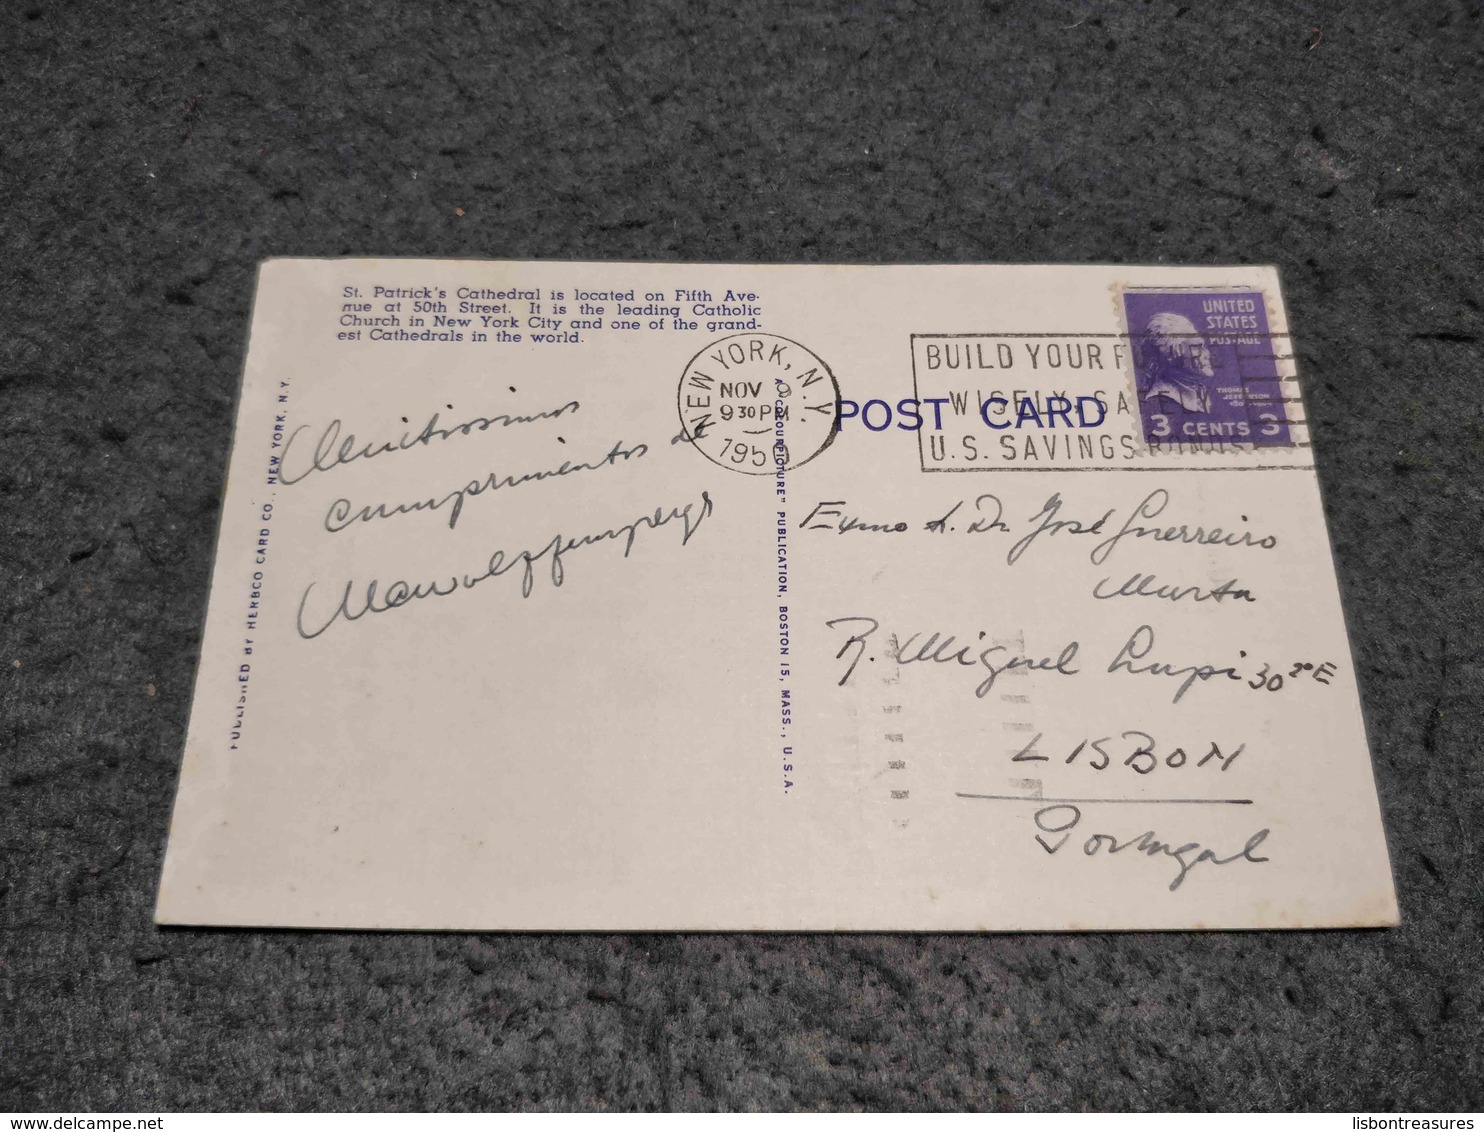 St. Patrick's Cathedral is located on Fifth Ave-
nue at 50th Street. It is the leading Catholic
Church in New York City and one of the grand-
est Cathedrals in the world.
PUBLISHED BY HERBCO CARD CO., NEW YORK, N.Y.
cumprimentos de
NEW YORK, N.Y.
NOV
9 30 PM
1950
A "COLOURPICTURE" PUBLICATION, BOSTON 15, MASS., U.S.A.
POST CARD
BUILD YOUR FUTURE
WISELY, SAFELY
U.S. SAVINGS BONDS
UNITED
STATES
POSTAGE
THOMAS
JEFFERSON
3 CENTS 3
Exmo Sr. Dr José Guerreiro
Murta
R. Miguel Lupi 30 2º E
LISBON
Portugal
delcampe.net
lisbontreasures